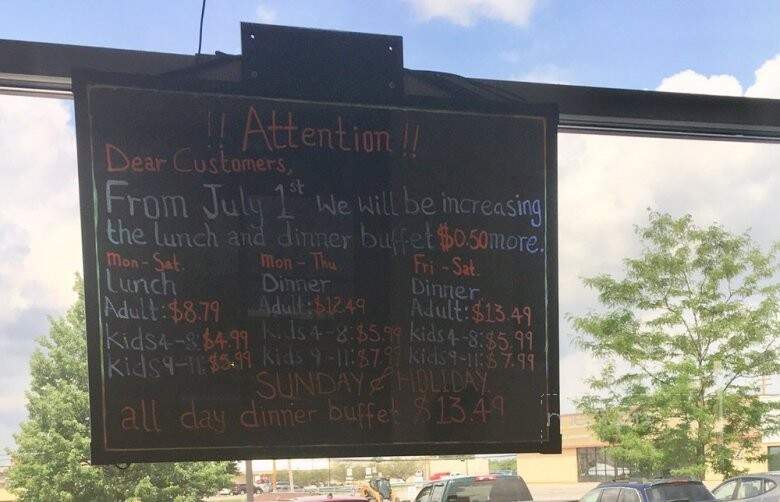 !! Attention !!
Dear Customers,
From July 1st We will be increasing
the lunch and dinner buffet $0.50 more.
Mon - Sat. Mon - Thu Fri - Sat.
Lunch Dinner Dinner
Adult: $8.79 Adult: $12.49 Adult: $13.49
Kids 4-8: $4.99 Kids 4-8: $5.99 Kids 4-8: $5.99
Kids 9-11: $5.99 Kids 9-11: $7.99 Kids 9-11: $7.99
SUNDAY & HOLIDAY
all day dinner buffet $13.49